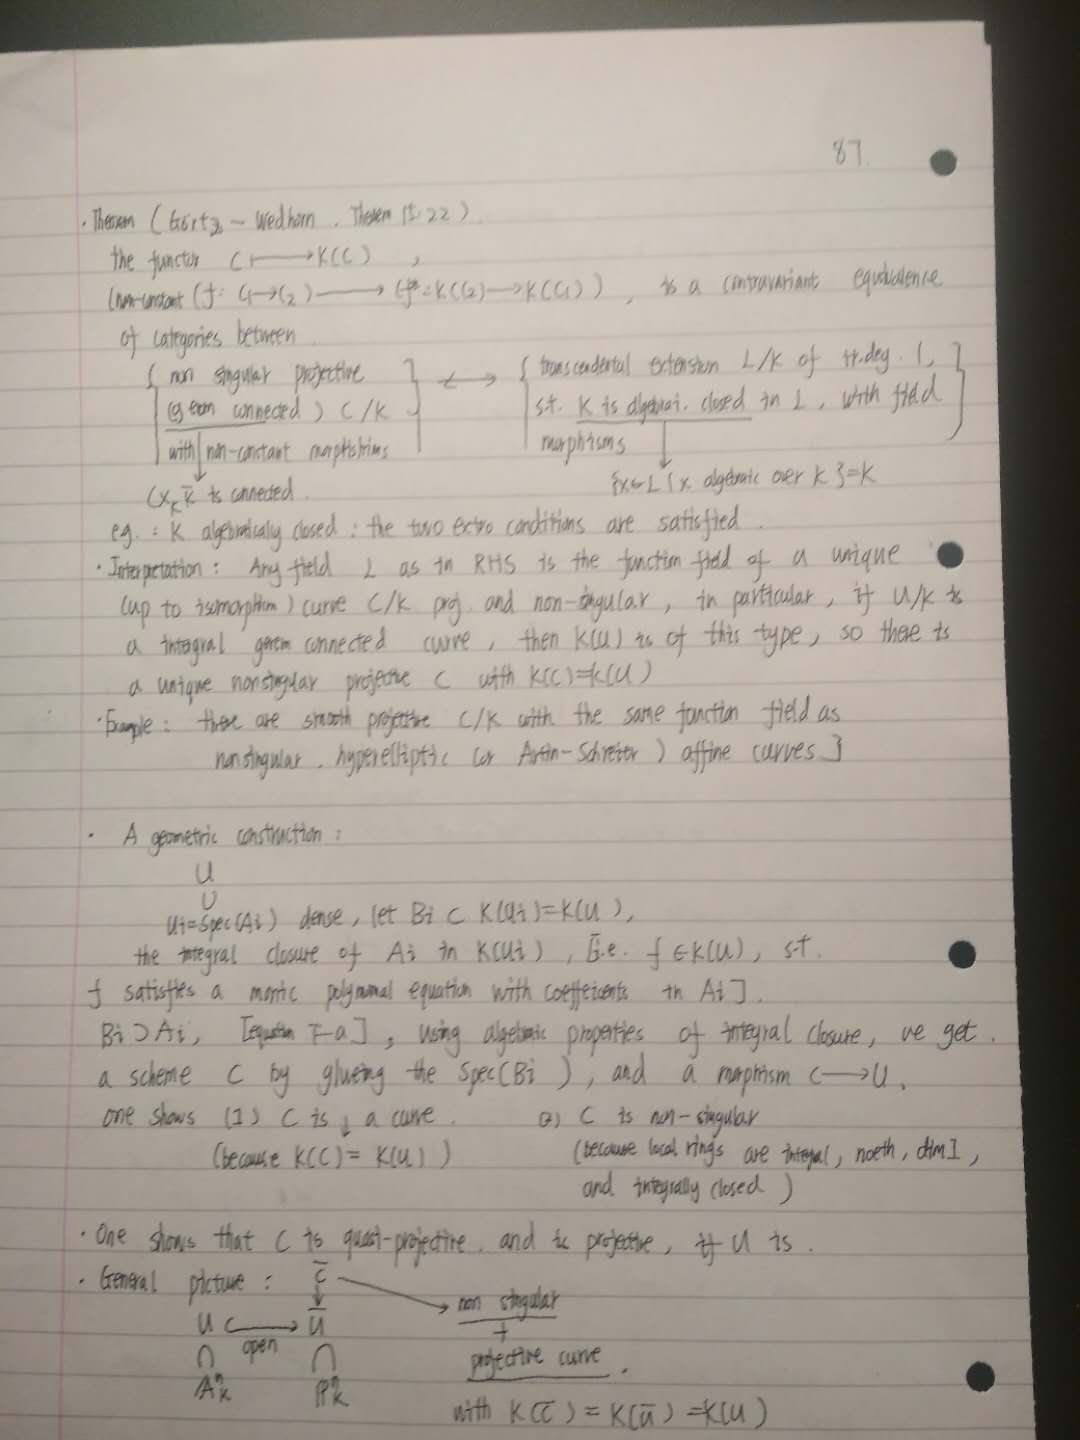 87.
· Theorem (Görtz - Wedhorn. Theorem 15.22).
the functor C ⟼ K(C) ,
(non-constant (f: C1→C2) ⟶ (f*=K(C2)→K(C1)) , is a contravariant equivalence
of categories between
{ non singular projective } ⟷ { transcendental extension L/K of tr.deg. 1,
(geom connected) C/K s.t. K is algebrai. closed in L, with field
with non-constant morphisims morphisms }
C×_K K̄ is connected. {x∈L | x algebraic over K}=K
eg. : K algebraically closed : the two extro conditions are satisfied.
· Interpretation : Any field L as in RHS is the function field of a unique
(up to isomorphim) curve C/K proj. and non-singular, in particular, if U/K is
a integral geom connected curve, then K(U) is of this type, so there is
a unique nonsingular projective C with K(C)=K(U)
· Example : there are smooth projective C/K with the same function field as
nonsingular. hyperelliptic (or Artin-Schreier) affine curves]
· A geometric construction :
U
∪
Ui=Spec(Ai) dense, let Bi ⊂ K(Ui)=K(U),
the integral closure of Ai in K(Ui), [i.e. f ∈K(U), s.t.
f satisfies a monic polynomal equation with coeffeicents in Ai].
Bi⊃Ai, [equation a], using algebraic properties of integral closure, we get.
a scheme C by glueing the Spec(Bi), and a morphism C⟶U.
one shows (1) C is a curve. (2) C is non-singular
(because K(C)= K(U)) (because local rings are integral, noeth, dim1,
and integrally closed)
· One shows that C is quasi-projective. and is projective, if U is.
· General picture : C̄ → non singular
↓
U ↪ Ū +
open
∩ ∩ projective curve.
𝔸ⁿ_K ℙⁿ_K
with K(C̄) = K(Ū) =K(U)